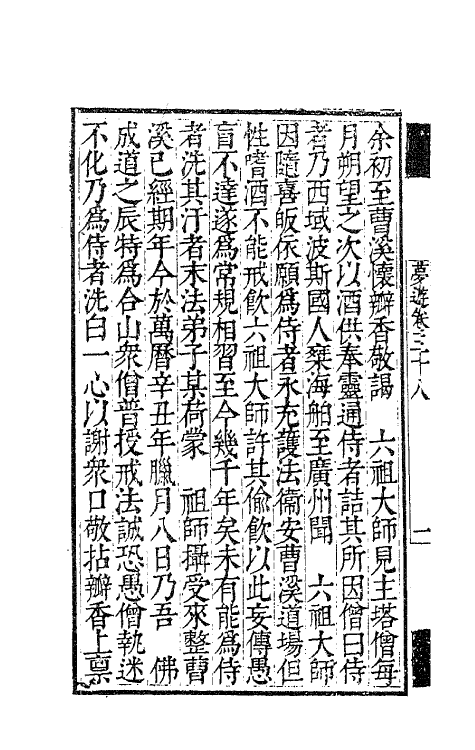 夢遊卷三十八
一
余初至曹溪懷瓣香敬謁　六祖大師見主塔僧每
月朔望之次以酒供奉靈通侍者詰其所因僧曰侍
者乃西域波斯國人棄海舶至廣州聞　六祖大師
因隨喜皈依願為侍者永充護法衞安曹溪道場但
性嗜酒不能戒飲六祖大師許其偷飲以此妄傳愚
盲不達遂為常規相習至今幾千年矣未有能為侍
者洗其汙者末法弟子某荷蒙　祖師攝受來整曹
溪已經期年今於萬曆辛丑年臘月八日乃吾　佛
成道之辰特為合山衆僧普授戒法誠恐愚僧執迷
不化乃為侍者洗白一心以謝衆口敬拈瓣香上禀